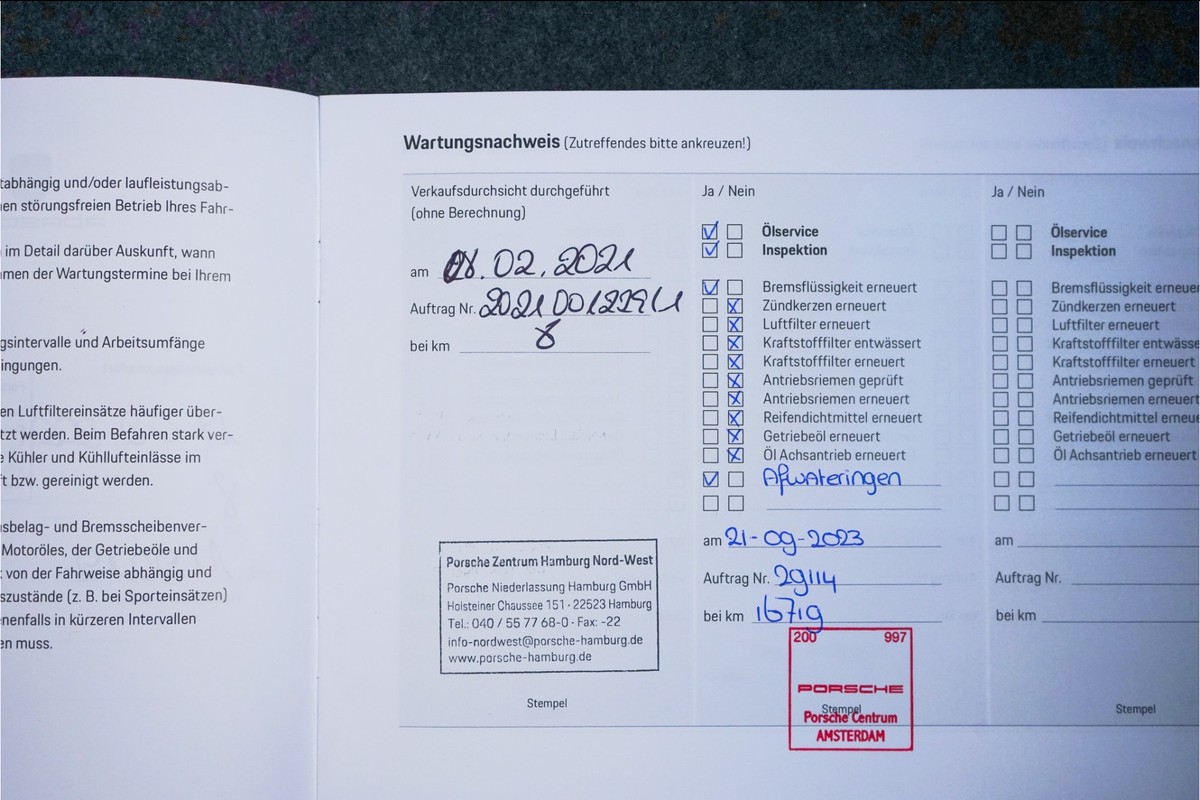 tabhängig und/oder laufleistungsab-
en störungsfreien Betrieb Ihres Fahr-
im Detail darüber Auskunft, wann
men der Wartungstermine bei Ihrem
gsintervalle und Arbeitsumfänge
ingungen.
en Luftfiltereinsätze häufiger über-
tzt werden. Beim Befahren stark ver-
e Kühler und Kühllufteinlässe im
t bzw. gereinigt werden.
sbelag- und Bremsscheibenver-
Motoröles, der Getriebeöle und
von der Fahrweise abhängig und
szustände (z. B. bei Sporteinsätzen)
nenfalls in kürzeren Intervallen
en muss.
Wartungsnachweis (Zutreffendes bitte ankreuzen!)
Verkaufsdurchsicht durchgeführt
(ohne Berechnung)
am 08.02.2021
Auftrag Nr.
bei km 8
Porsche Zentrum Hamburg Nord-West
Porsche Niederlassung Hamburg GmbH
Holsteiner Chaussee 151 · 22523 Hamburg
Tel.: 040 / 55 77 68-0 · Fax: -22
info-nordwest@porsche-hamburg.de
www.porsche-hamburg.de
Stempel
Ja / Nein
Ölservice
Inspektion
Bremsflüssigkeit erneuert
Zündkerzen erneuert
Luftfilter erneuert
Kraftstofffilter entwässert
Kraftstofffilter erneuert
Antriebsriemen geprüft
Antriebsriemen erneuert
Reifendichtmittel erneuert
Getriebeöl erneuert
Öl Achsantrieb erneuert
Afwateringen
am 21-09-2023
Auftrag Nr. 29114
bei km 16719
200 997
PORSCHE
Stempel
Porsche Centrum
AMSTERDAM
Ja / Nein
Ölservice
Inspektion
Bremsflüssigkeit erneuer
Zündkerzen erneuert
Luftfilter erneuert
Kraftstofffilter entwässe
Kraftstofffilter erneuert
Antriebsriemen geprüft
Antriebsriemen erneuert
Reifendichtmittel erneue
Getriebeöl erneuert
Öl Achsantrieb erneuert
am
Auftrag Nr.
bei km
Stempel